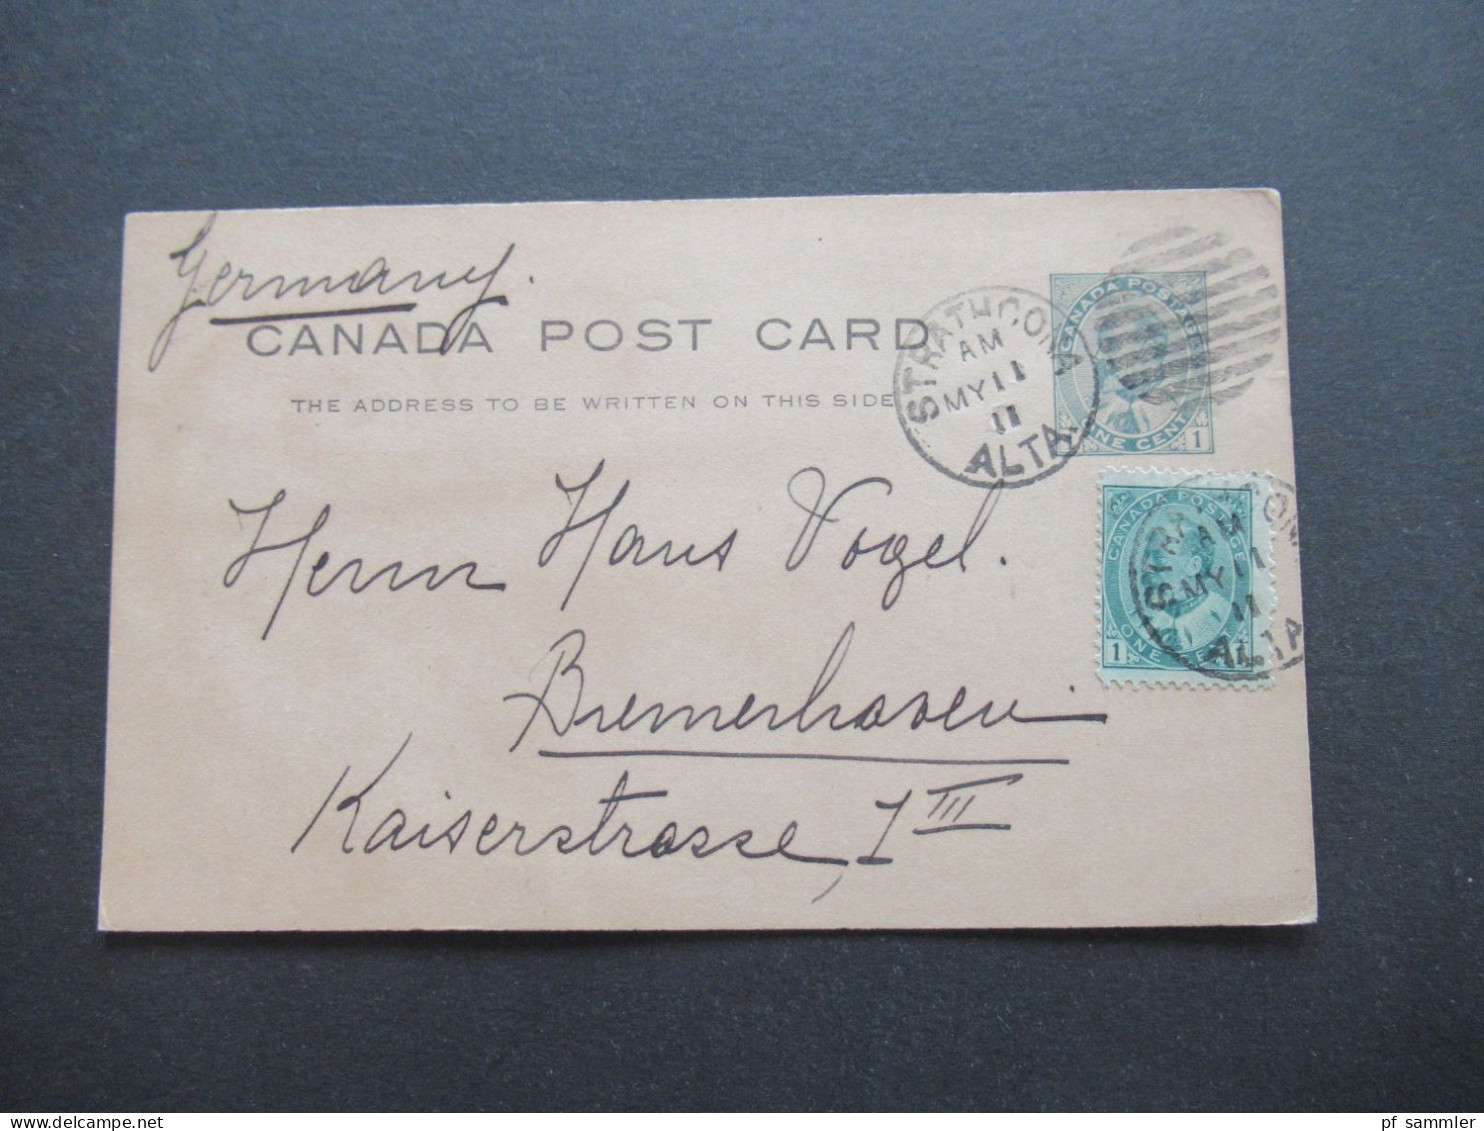 Germany.
CANADA POST CARD
THE ADDRESS TO BE WRITTEN ON THIS SIDE
STRATHCONA
AM
MY 11
11
ALTA.
CANADA POSTAGE
ONE CENT
1
Herrn Hans Vogel.
Bremerhaven
Kaiserstrasse, 1 III
CANADA POSTAGE
ONE CENT
1
STRATHCONA
AM
MY 11
11
ALTA
pf_sammler